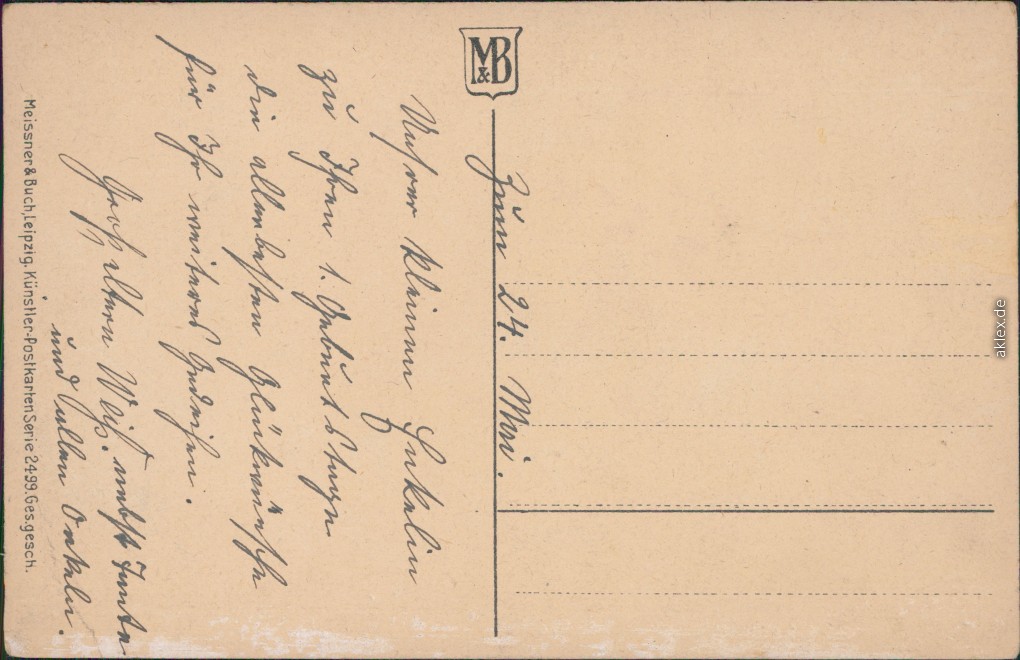 Zum 24. Mai.
Unsrer kleinen Enkelin
zu Ihren 1. Geburtstage
die allerbesten Glückwünsche
für Ihr weiteres Gedeihen.
Großeltern Weiß. nebst Tante
und Onkeln.
Meissner & Buch, Leipzig. Künstler-Postkarten Serie 2499. Ges. gesch.
M&B
aklex.de